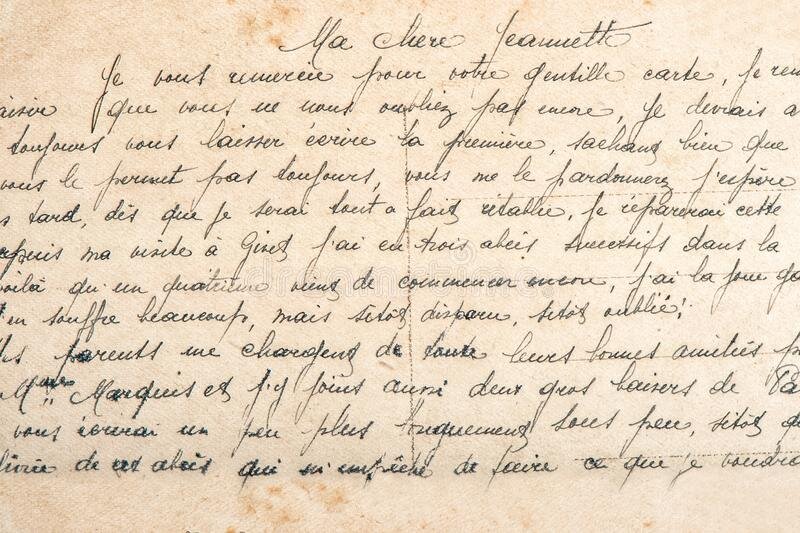 Ma chere Jeannette
Je vous remercie pour votre gentille carte, je rem
aisir que vous ne nous oubliez pas encore, je devrais a
toujours vous laisser écrire la première, sachant bien que
vous le permet pas toujours, vous me le pardonnerez j'espère
s tard, dès que je serai tout a fait rétablie, je réparerai cette
epuis ma visite à Givet j'ai eu trois abcès successifs dans la
voilà qu'un quatrième vient de commencer encore, j'ai la joue go
j'en souffre beaucoup, mais sitôt disparu, sitôt oublié!
es parents me chargent de toute leurs bonnes amitiés p
Mme Marquis et j'y joins aussi deux gros baisers de
vous écrirai un peu plus longuement sous peu, sitôt q
livrée de cet abcès qui m'empêche de faire ce que je voudra